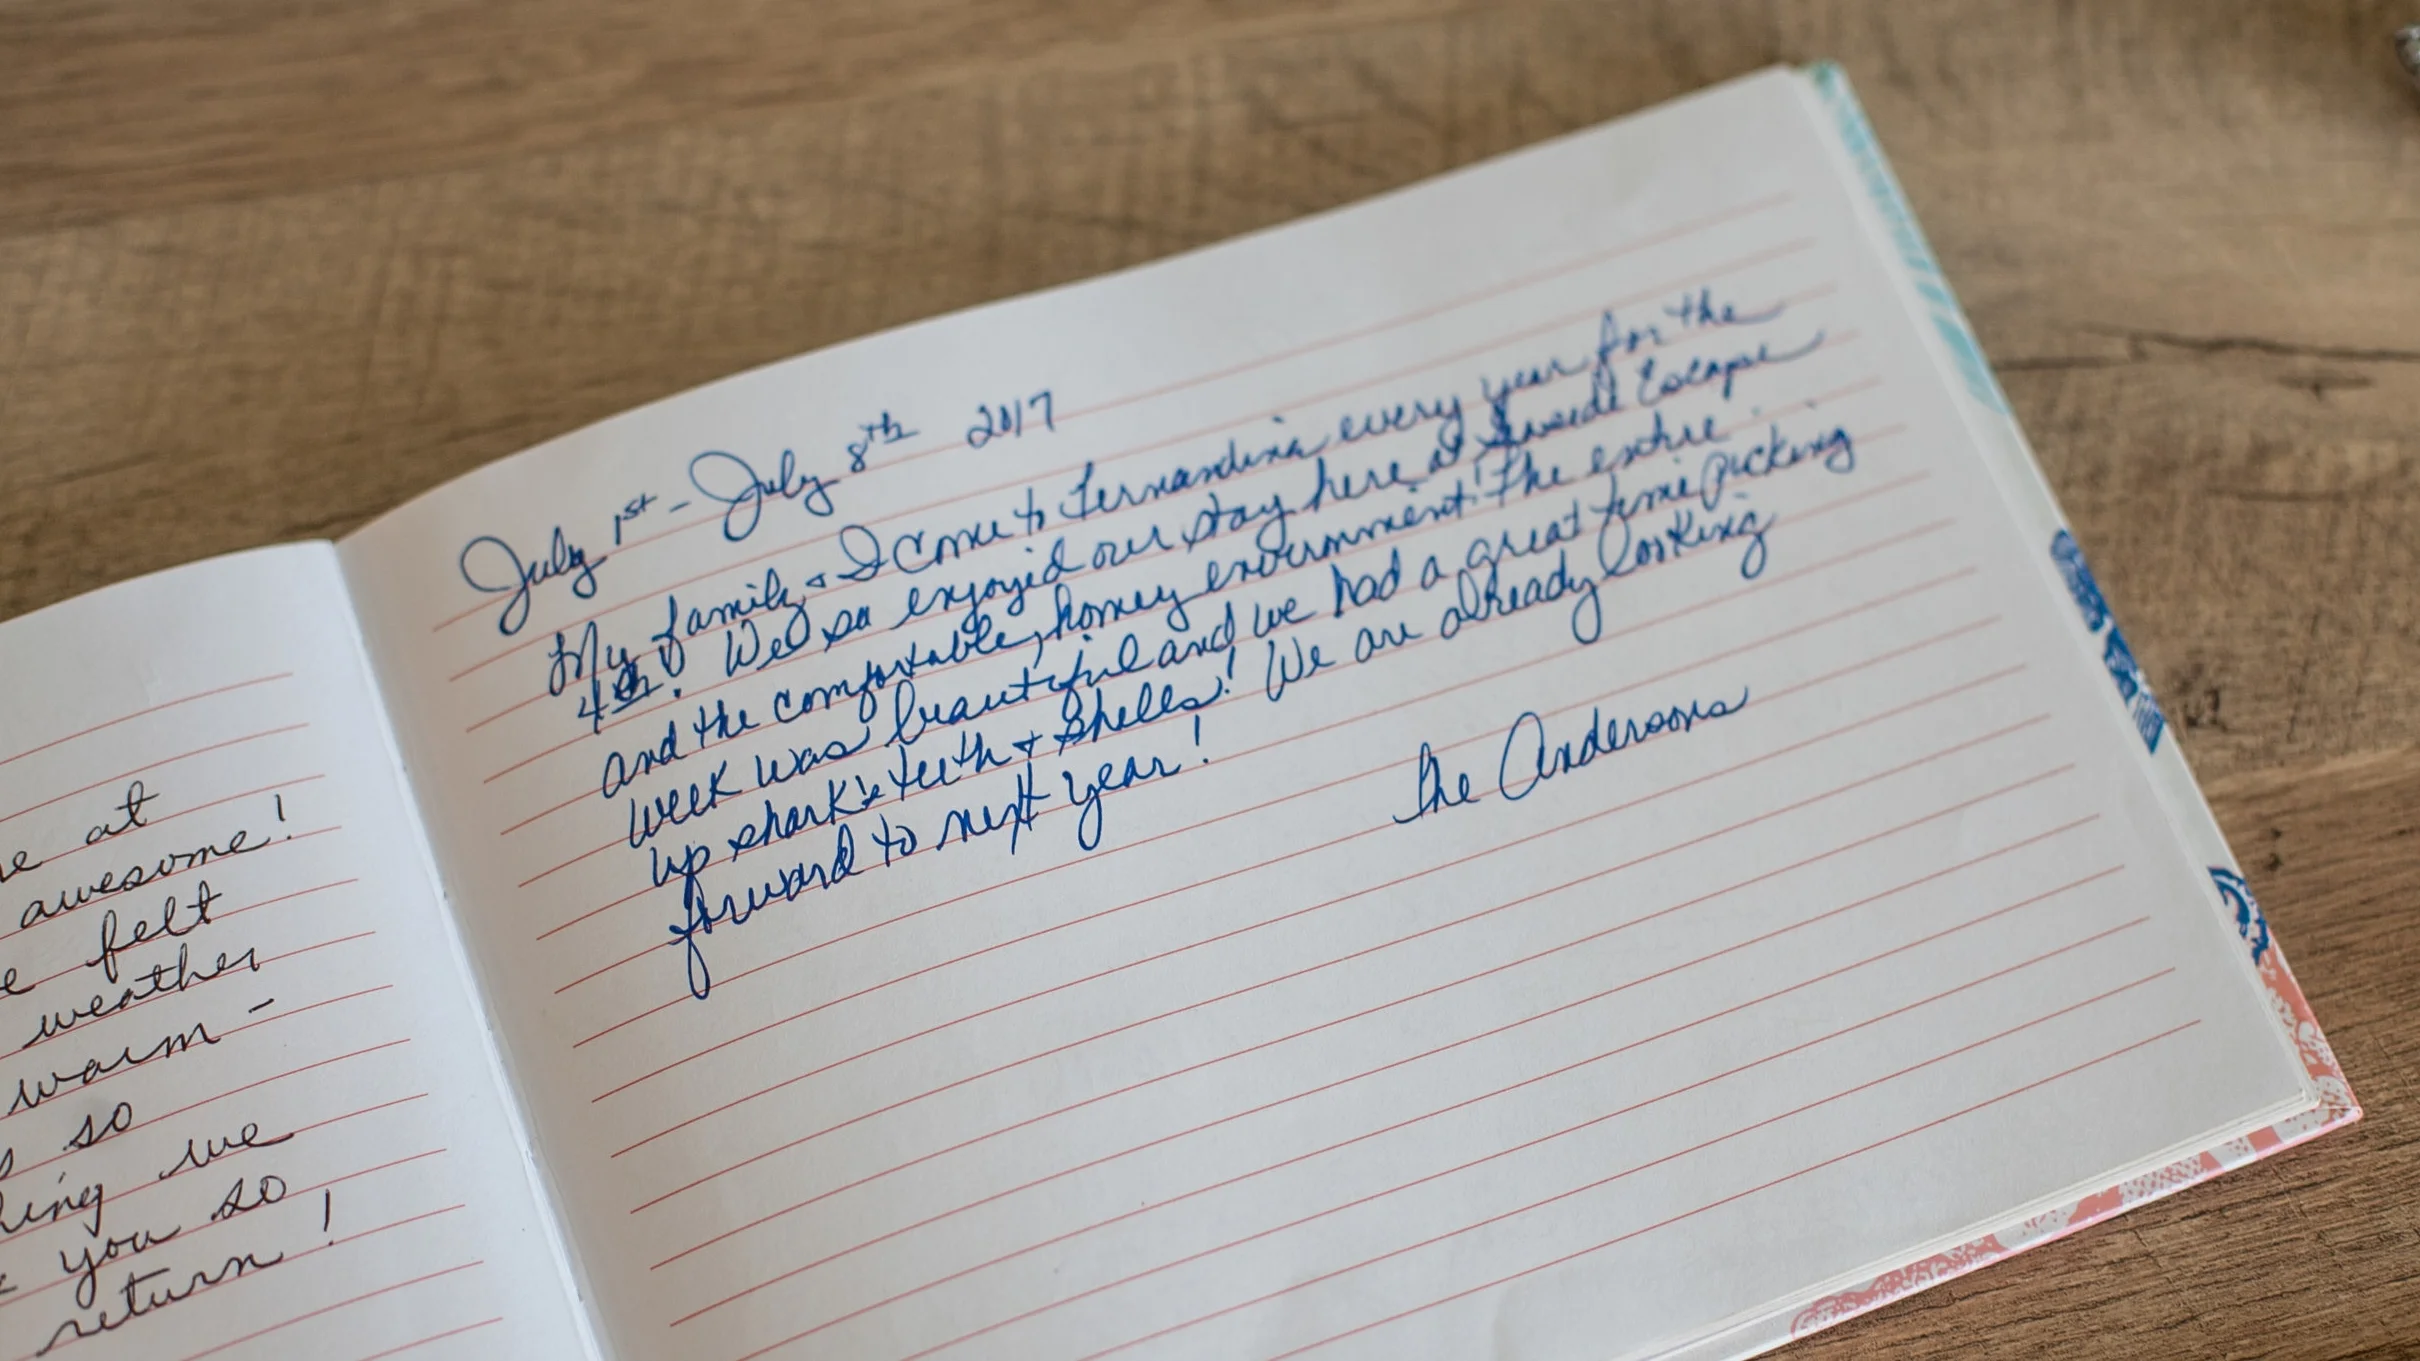 e at
awesome!
e felt
weather
warm -
so
hing we
you so
return!
July 1st - July 8th 2017
My family & I come to Fernandina every year for the
4th. We so enjoyed our stay here at Escape
and the comfortable, homey enviornment. The entire
week was beautiful and we had a great time picking
up shark's teeth & shells! We are already looking
forward to next year!
The Andersons